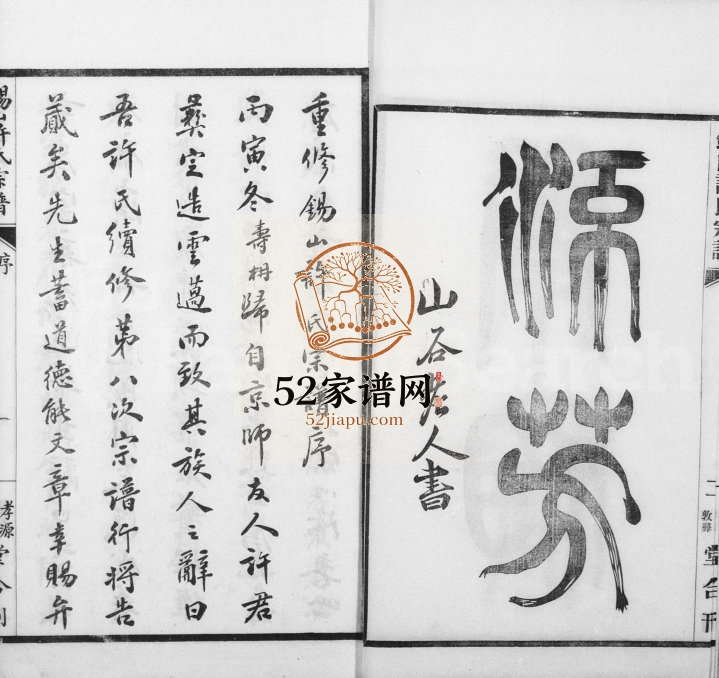 源
芬
山谷老人書
敦驛
堂合刊
重修錫山許氏宗譜序
丙寅冬壽柟歸自京師友人許君
彝定造雲邁而致其族人之辭曰
吾許氏續修第八次宗譜行將告
蕆矣先生蓄道德能文章幸賜弁
錫山許氏宗譜
序
一
孝源堂合刊
52家谱网
52jiapu.com